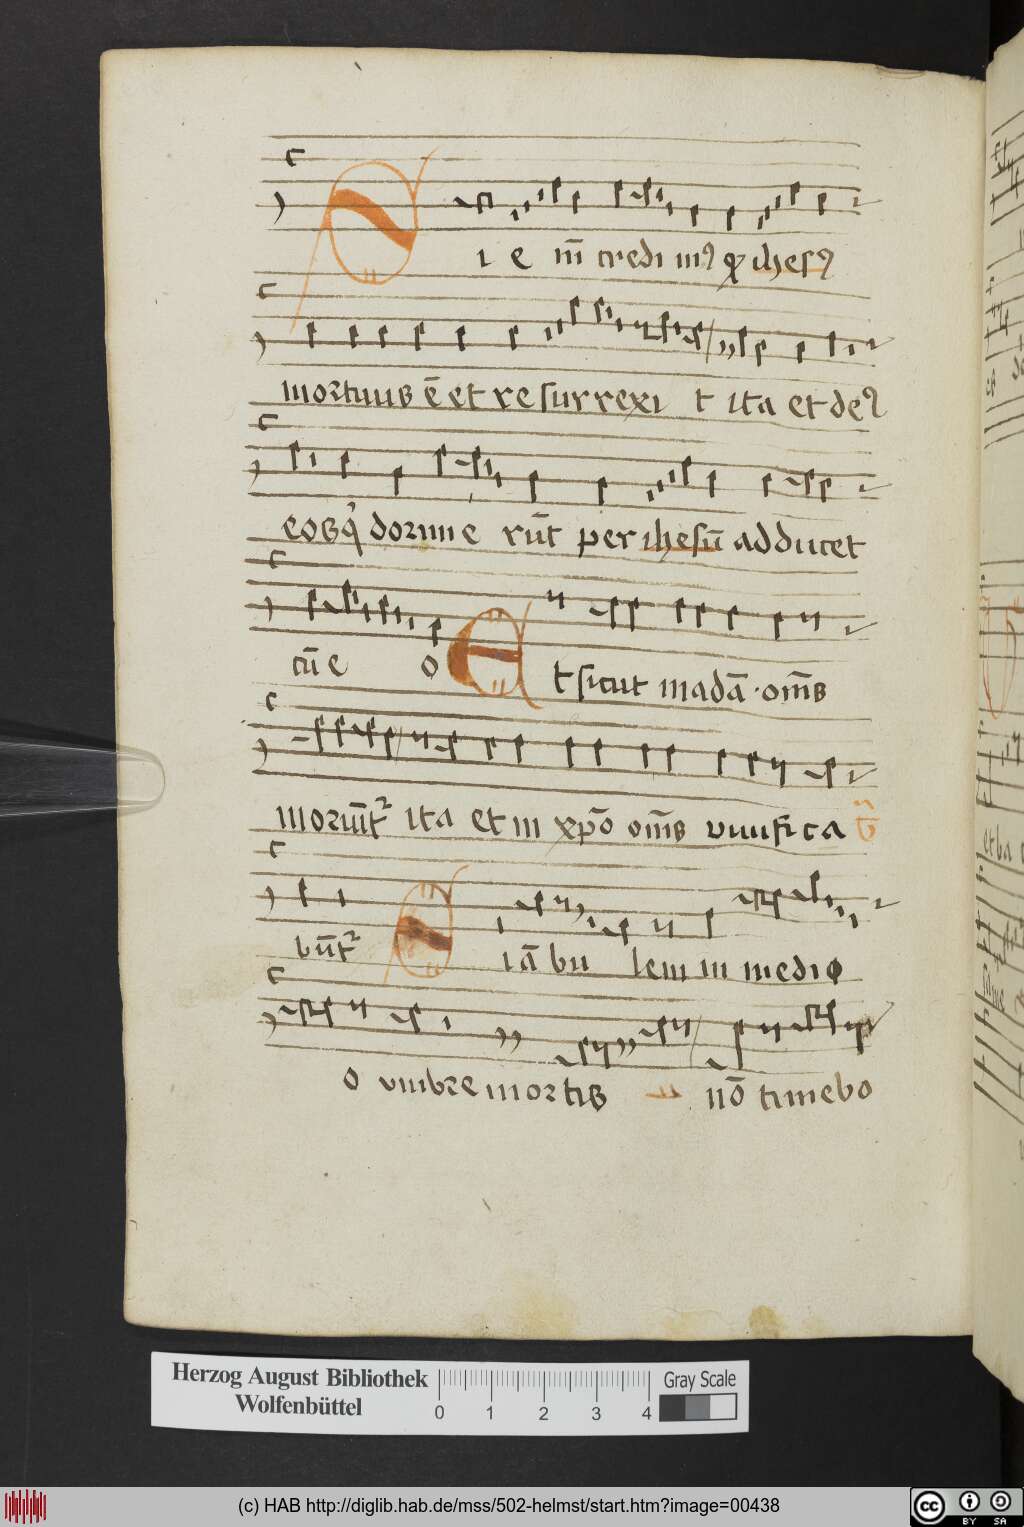 Si eni credimus quod ihesus
mortuus ē et resurrexi t ita et deus
eosqui dormie rūt per ihesū adducet
cū e o Et sicut in adā · om̄s
moriūt᷑ ita et in xp̄o om̄s vivifica
būt᷑ Si ābu lem in medio
o vmbre mortis nō timebo
Herzog August Bibliothek
Wolfenbüttel
0 1 2 3 4
Gray Scale
(c) HAB http://diglib.hab.de/mss/502-helmst/start.htm?image=00438
cc BY SA